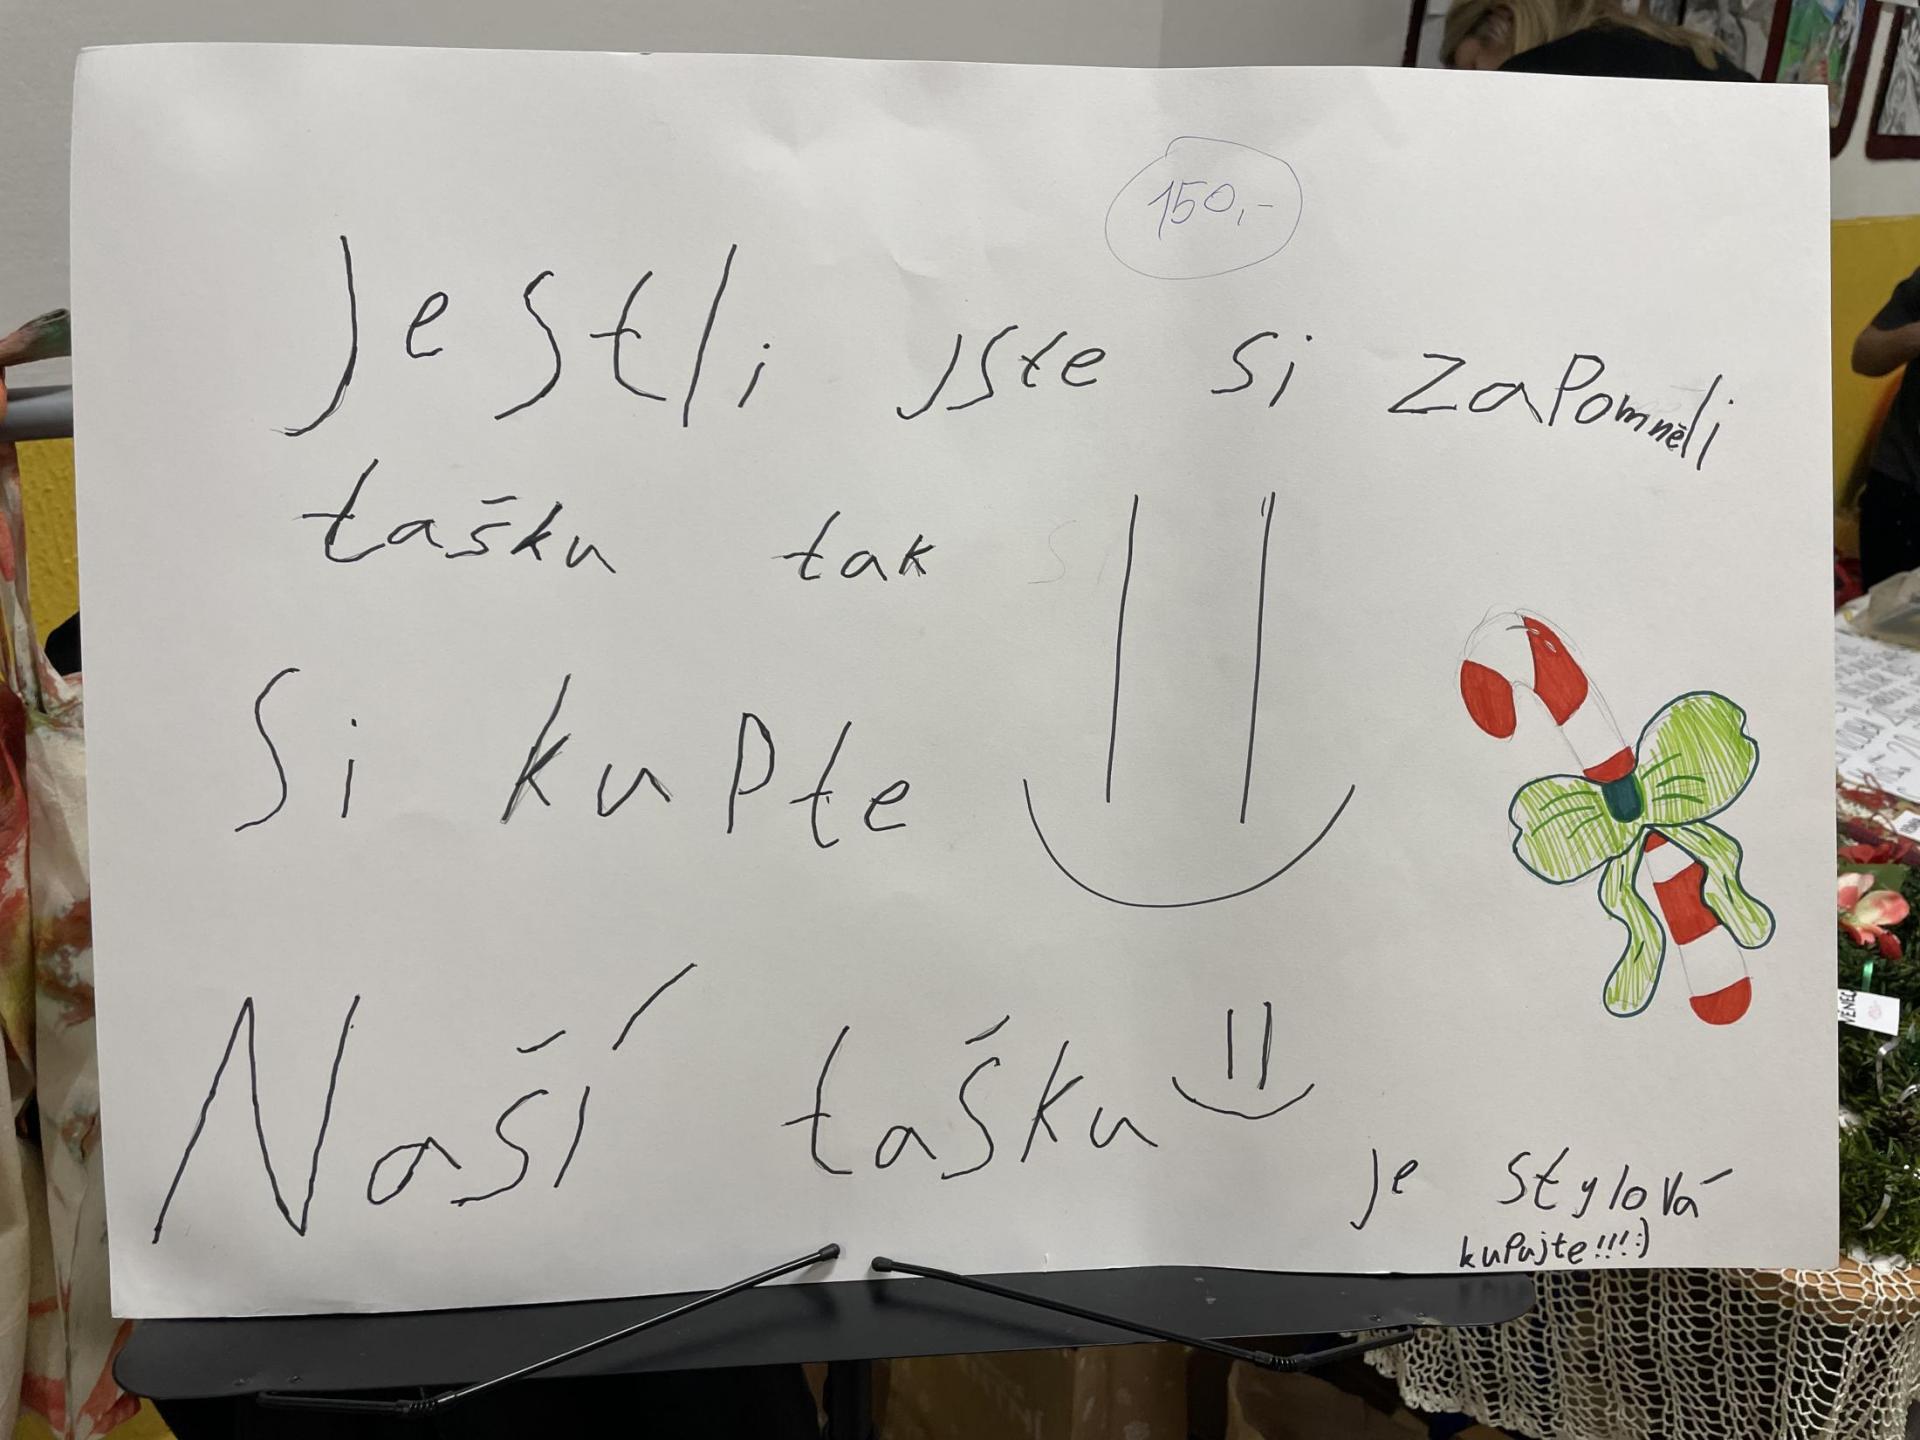 150,-
Jestli jste si zapomněli
tašku tak
si kupte
Naší tašku
je stylová
kupujte!!!:)
VĚNEC